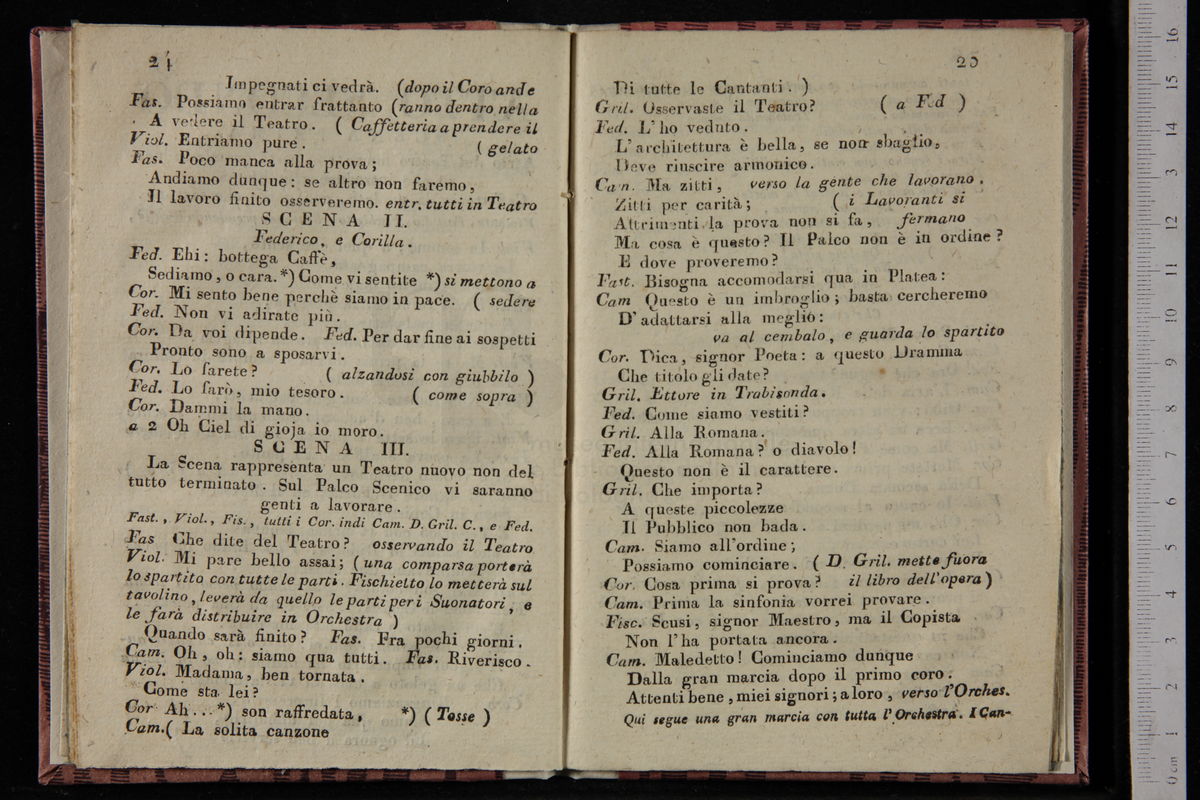 24
Impegnati ci vedrà. (dopo il Coro ande
Fas. Possiamo entrar frattanto (ranno dentro nella
A vedere il Teatro. ( Caffetteria a prendere il
Viol. Entriamo pure. ( gelato
Fas. Poco manca alla prova;
Andiamo dunque: se altro non faremo,
Il lavoro finito osserveremo. entr. tutti in Teatro
SCENA II.
Federico, e Corilla.
Fed. Ehi: bottega Caffè,
Sediamo, o cara. *) Come vi sentite *) si mettono a
Cor. Mi sento bene perchè siamo in pace. ( sedere
Fed. Non vi adirate più.
Cor. Da voi dipende. Fed. Per dar fine ai sospetti
Pronto sono a sposarvi.
Cor. Lo farete? ( alzandosi con giubbilo )
Fed. Lo farò, mio tesoro. ( come sopra )
Cor. Dammi la mano.
a 2 Oh Ciel di gioja io moro.
SCENA III.
La Scena rappresenta un Teatro nuovo non del
tutto terminato. Sul Palco Scenico vi saranno
genti a lavorare.
Fast., Viol., Fis., tutti i Cor. indi Cam. D. Gril. C., e Fed.
Fas Che dite del Teatro? osservando il Teatro
Viol. Mi pare bello assai; ( una comparsa porterà
lo spartito con tutte le parti. Fischietto lo metterà sul
tavolino, leverà da quello le parti per i Suonatori, e
le farà distribuire in Orchestra )
Quando sarà finito? Fas. Fra pochi giorni.
Cam. Oh, oh: siamo qua tutti. Fas. Riverisco.
Viol. Madama, ben tornata.
Come sta lei?
Cor Ah... *) son raffredata, *) ( Tosse )
Cam. ( La solita canzone
25
Di tutte le Cantanti. )
Gril. Osservaste il Teatro? ( a Fed )
Fed. L'ho veduto.
L'architettura è bella, se non sbaglio,
Deve riuscire armonico.
Cam. Ma zitti, verso la gente che lavorano.
Zitti per carità; ( i Lavoranti si
Altrimenti la prova non si fa, fermano
Ma cosa è questo? Il Palco non è in ordine?
E dove proveremo?
Fast. Bisogna accomodarsi qua in Platea:
Cam Questo è un imbroglio; basta cercheremo
D'adattarsi alla meglio:
va al cembalo, e guarda lo spartito
Cor. Dica, signor Poeta: a questo Dramma
Che titolo gli date?
Gril. Ettore in Trabisonda.
Fed. Come siamo vestiti?
Gril. Alla Romana.
Fed. Alla Romana? o diavolo!
Questo non è il carattere.
Gril. Che importa?
A queste piccolezze
Il Pubblico non bada.
Cam. Siamo all'ordine;
Possiamo cominciare. ( D. Gril. mette fuora
Cor. Cosa prima si prova? il libro dell'opera)
Cam. Prima la sinfonia vorrei provare.
Fisc. Scusi, signor Maestro, ma il Copista
Non l'ha portata ancora.
Cam. Maledetto! Cominciamo dunque
Dalla gran marcia dopo il primo coro.
Attenti bene, miei signori; a loro, verso l'Orches.
Qui segue una gran marcia con tutta l'Orchestra. I Can-
0 cm 1 2 3 4 5 6 7 8 9 10 11 12 13 14 15 16